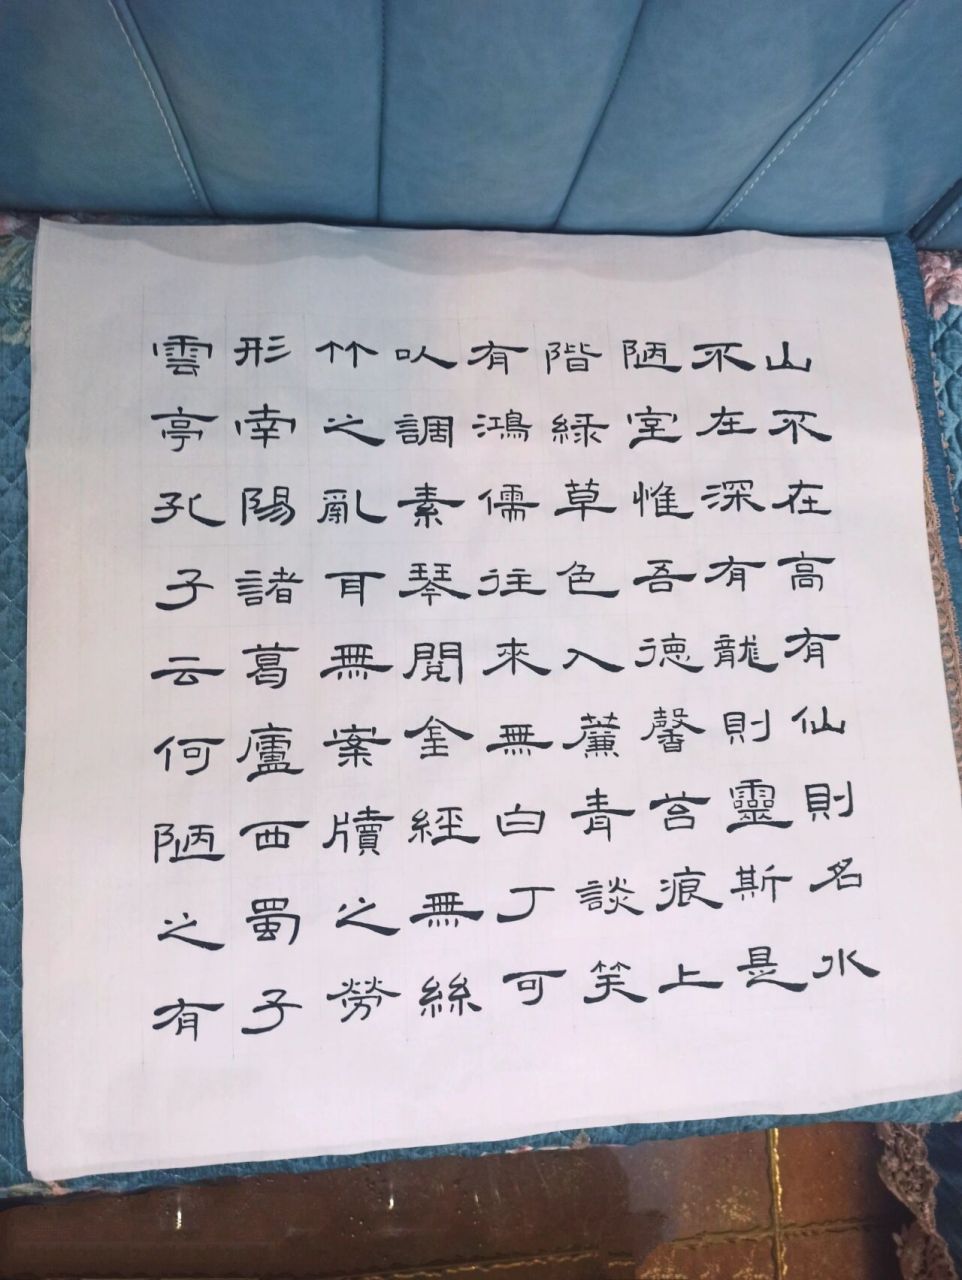 山不在高有仙則名水
不在深有龍則靈斯是
陋室惟吾德馨苔痕上
階緑草色入簾青談笑
有鴻儒往來無白丁可
以調素琴閱金經無絲
竹之亂耳無案牘之勞
形南陽諸葛廬西蜀子
雲亭孔子云何陋之有